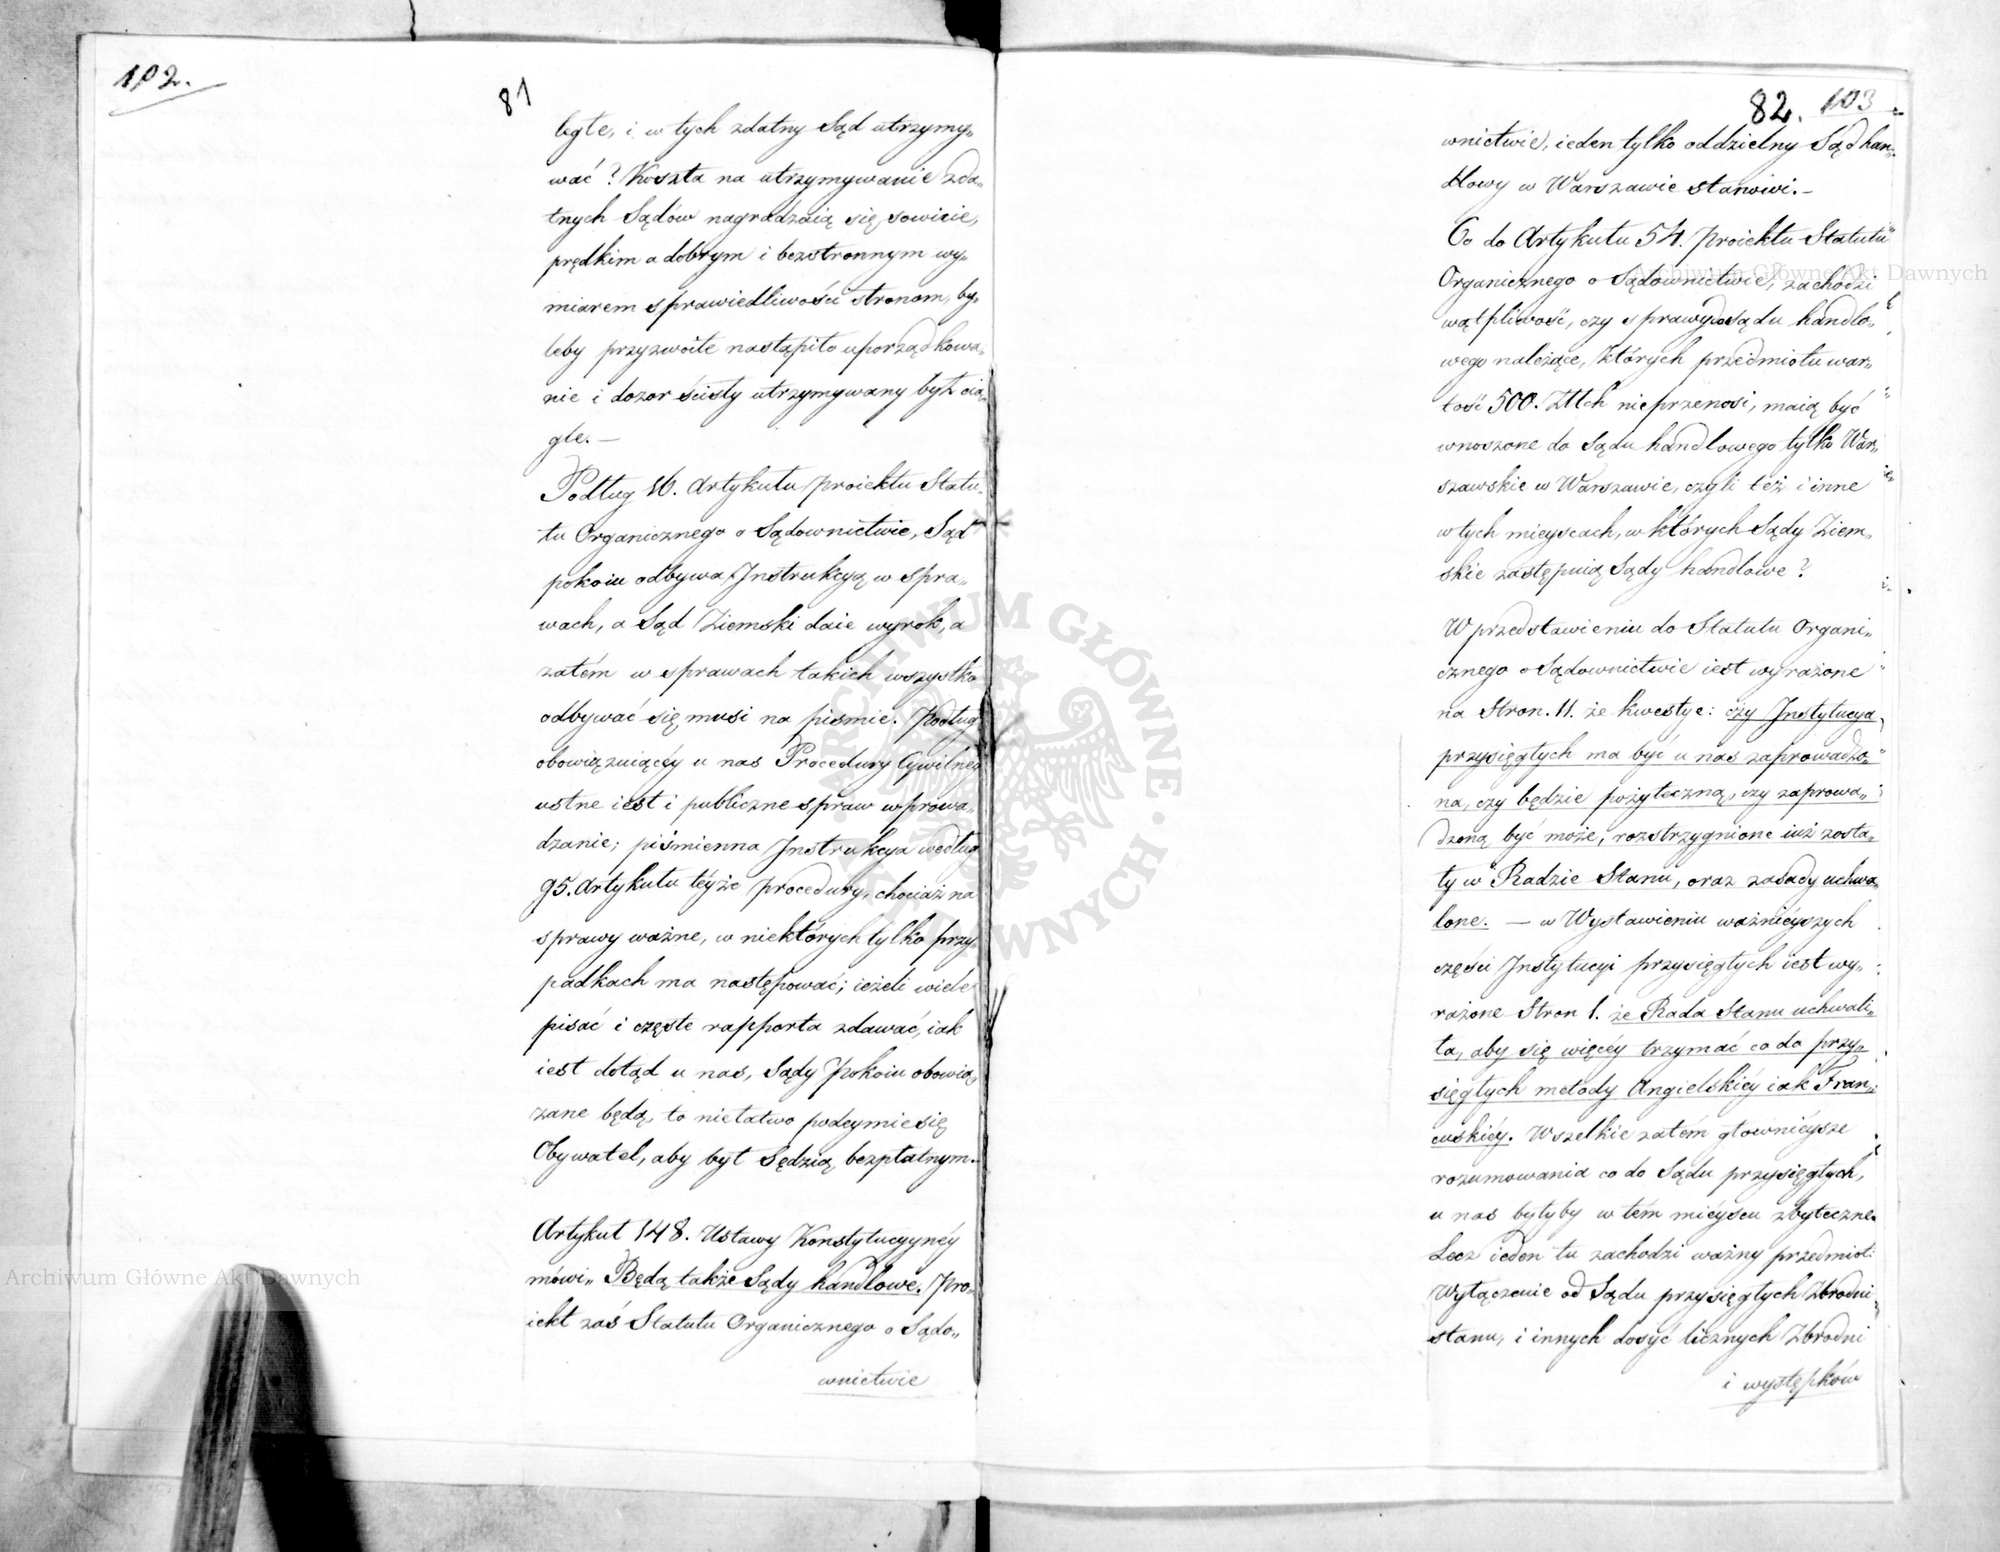 102.
81
ległe, i w tych zdatny Sąd utrzymy„
wać? Koszta na utrzymywanie zda„
tnych Sądów nagradzaią się sowicie,
prędkim a dobrym i bezstronnym wy„
miarem sprawiedliwości stronom, by„
leby przyzwoite nastąpiło uporządkowa„
nie i dozor ścisły utrzymywany był cią„
gle. —
Podług 16. Artykułu proiektu Statu„
tu Organicznego o Sądownictwie, Sąd
pokoiu odbywa Instrukcyą w spra„
wach, a Sąd Ziemski daie wyrok, a
zatém w sprawach takich wszystko
odbywać się musi na piśmie. Podług
obowiązuiącéy u nas Procedury Cywilnéy
ustne iest i publiczne spraw wprowa„
dzanie; piśmienna Instrukcya według
95. Artykułu téyże procedury, chociaż na
sprawy ważne, w niektórych tylko przy„
padkach ma następować; ieżeli wiele
pisać i częste rapporta zdawać, iak
iest dotąd u nas, Sądy Pokoiu obowią„
zane będą, to niełatwo podeymie się
Obywatel, aby był Sędzią bezpłatnym.—
Artykuł 148. Ustawy Konstytucyynéy
mówi„ Będą także Sądy handlowe. Pro„
iekt zaś Statutu Organicznego o Sądo„
wnictwie
82. 103
wnictwie, ieden tylko oddzielny Sąd han„
dlowy w Warszawie stanowi.—
Co do Artykułu 54. Proiektu Statutu
Organicznego o Sądownictwie, zachodzi
wątpliwość, czy sprawy do sądu handlo„
wego należące, których przedmiotu war„
tość 500. Złłch nieprzenosi, maią być
wnoszone do Sądu handlowego tylko War„
szawskie w Warszawie, czyli też i inne
w tych mieyscach, w których Sądy Ziem„
skie zastępuią Sądy handlowe?
W przedstawieniu do Statutu Organi„
cznego o Sądownictwie iest wyrażone
na Stron. 11. że kwestye: czy Instytucya
przysięgłych ma być u nas zaprowadzo„
na, czy będzie pożyteczną, czy zaprowa„
dzoną być może, rozstrzygnione iuż zosta„
ły w Radzie Stanu, oraz zasady uchwa„
lone. — w Wystawieniu ważniéyszych
części Instytucyi przysięgłych iest wy„
rażone Stron 1. że Rada Stanu uchwali„
ła, aby się więcéy trzymać co do przy„
sięgłych metody Angielskiéy iak Fran„
cuskiéy. Wszelkie zatém głowniéysze
rozumowania co do Sądu przysięgłych,
u nas byłyby w tém mieyscu zbyteczne.
Lecz ieden tu zachodzi ważny przedmiot:
Wyłączenie od Sądu przysięgłych Zbrodni
stanu, i innych dosyć licznych Zbrodni
i występków
Archiwum Główne Akt Dawnych
Archiwum Główne Akt Dawnych
ARCHIWUM GŁÓWNE AKT DAWNYCH